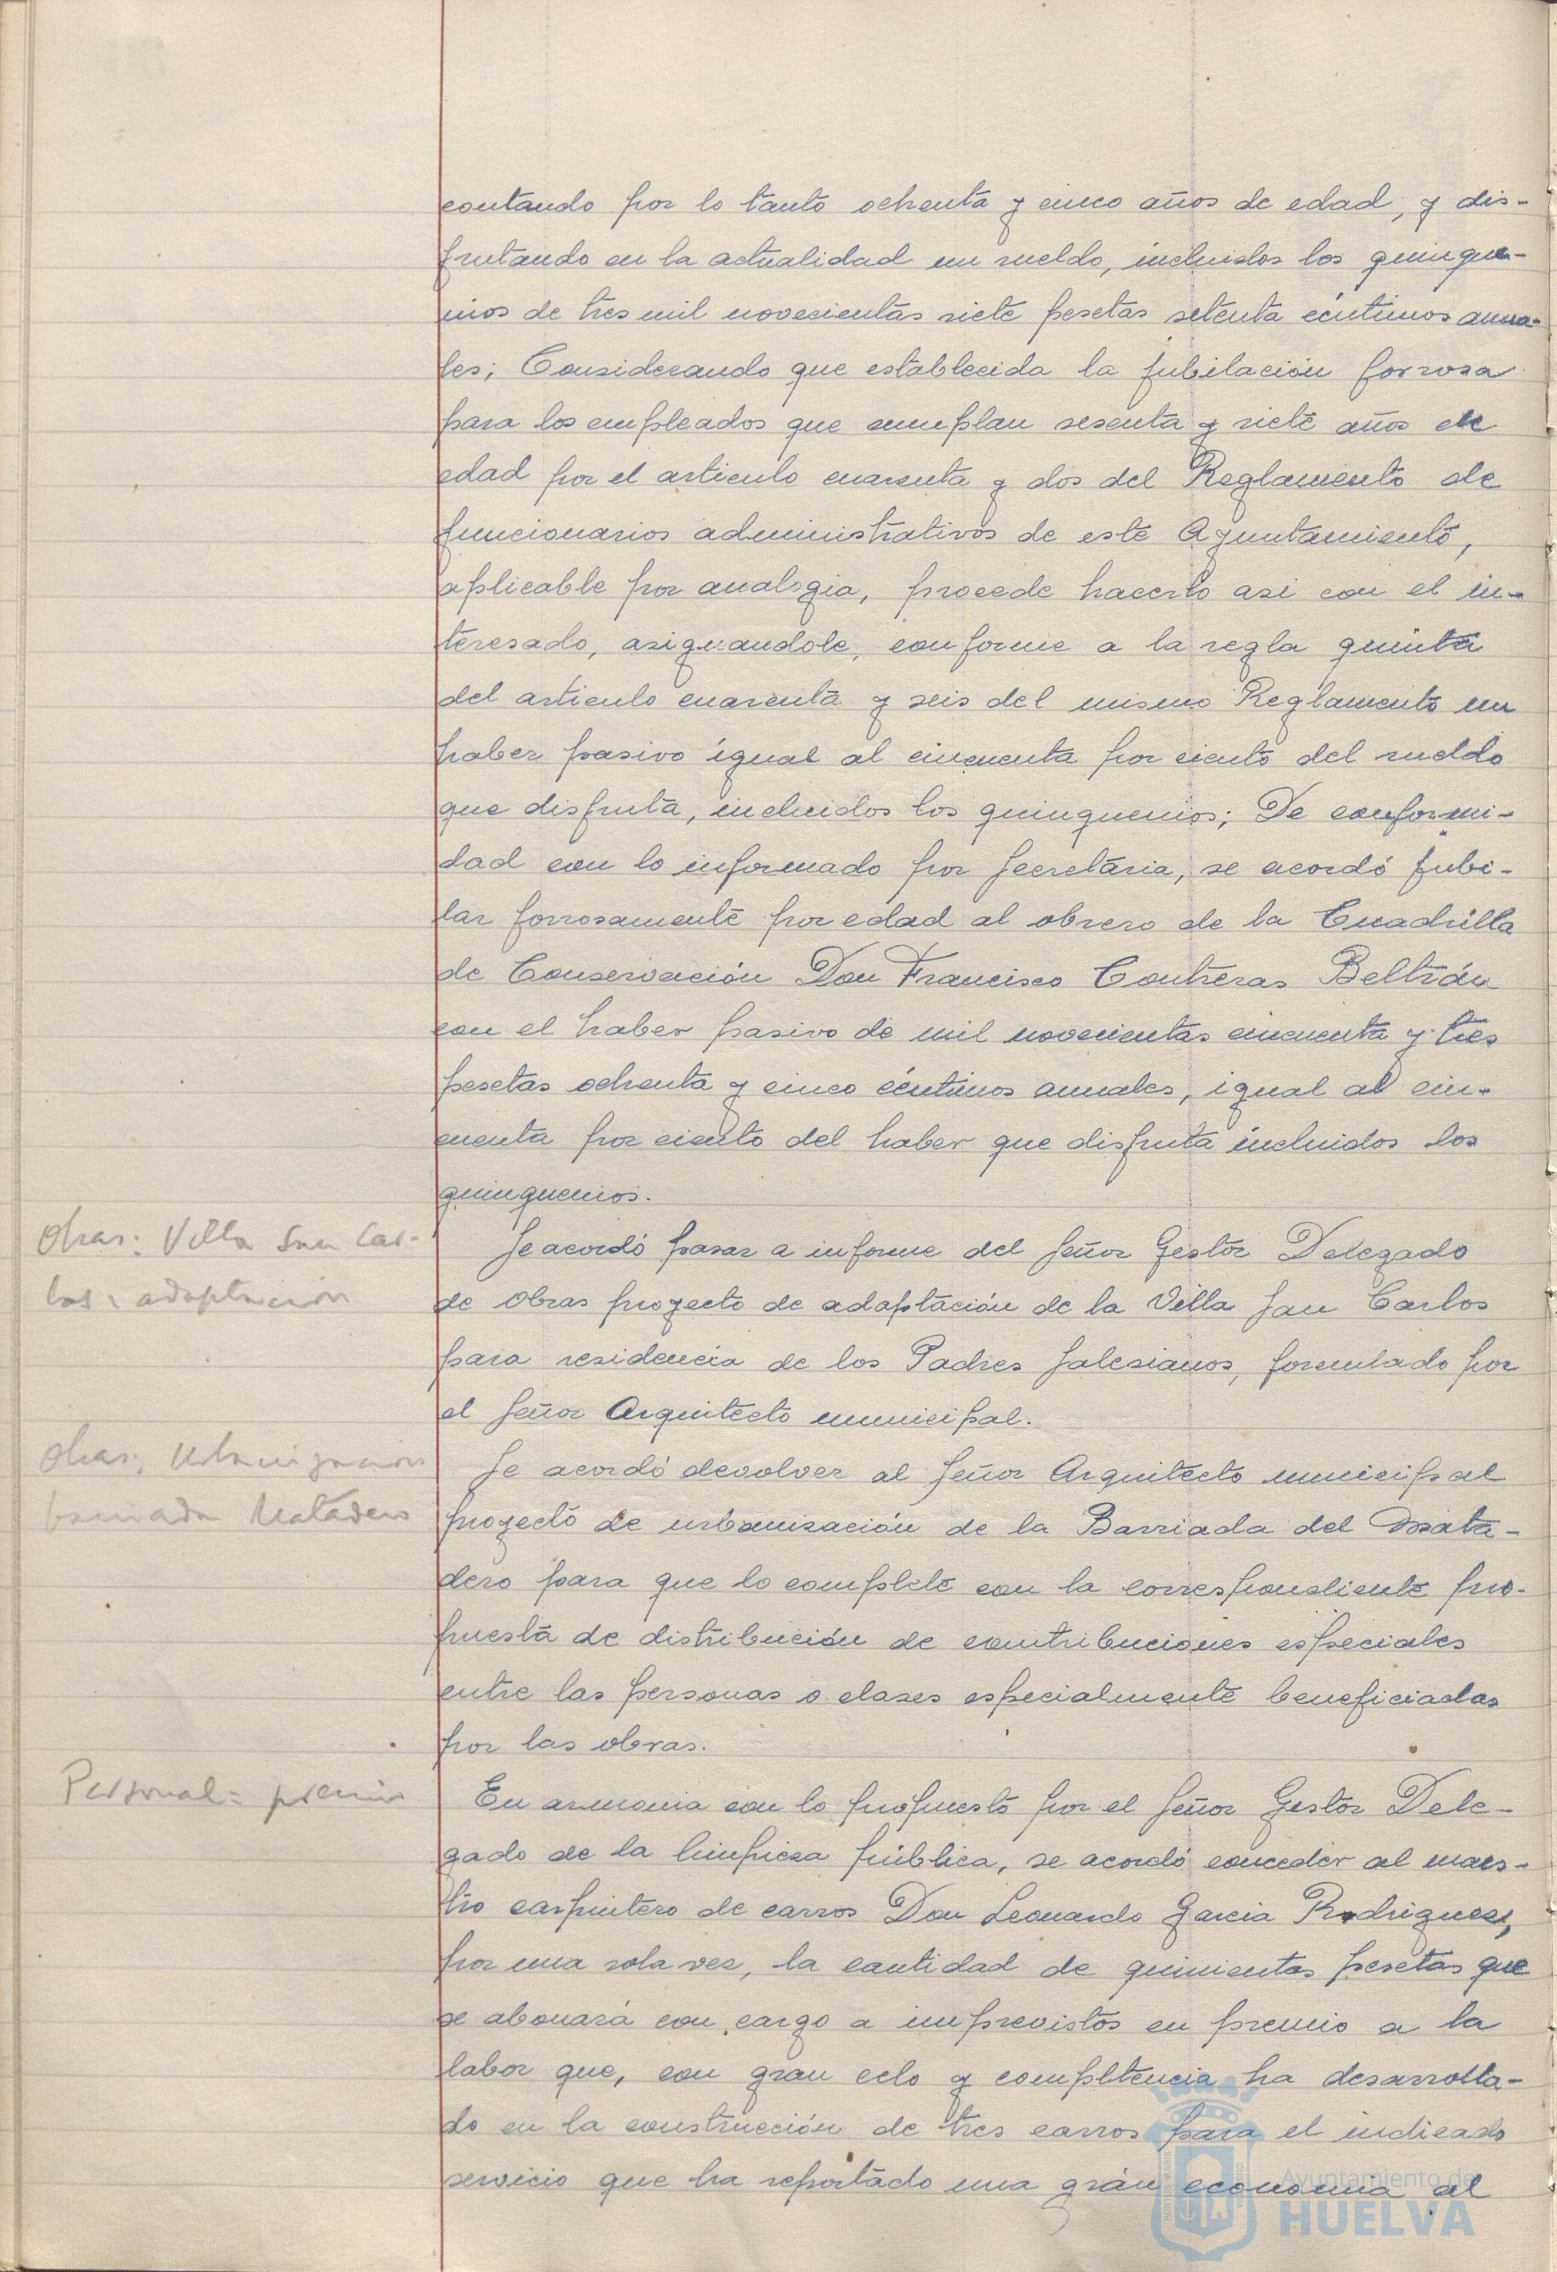 contando por lo tanto ochenta y cinco años de edad, y dis-
frutando en la actualidad un sueldo, incluidos los quinque-
nios de tres mil novecientas siete pesetas setenta céntimos anua-
les; Considerando que establecida la jubilación forzosa
para los empleados que cumplan sesenta y siete años de
edad por el articulo cuarenta y dos del Reglamento de
funcionarios administrativos de este Ayuntamiento,
aplicable por analogia, procede hacerlo asi con el in-
teresado, asignandole, conforme a la regla quinta
del articulo cuarenta y seis del mismo Reglamento un
haber pasivo igual al cincuenta por ciento del sueldo
que disfruta, incluidos los quinquenios; De conformi-
dad con lo informado por Secretaria, se acordó jubi-
lar forzosamente por edad al obrero de la Cuadrilla
de Conservación Don Francisco Contreras Beltrán
con el haber pasivo de mil novecientas cincuenta y tres
pesetas ochenta y cinco céntimos anuales, igual al cin-
cuenta por ciento del haber que disfruta incluidos los
quinquenios.
Obras: Villa San Car-
los: adaptación
Se acordó pasar a informe del Señor Gestor Delegado
de obras proyecto de adaptación de la Villa San Carlos
para residencia de los Padres Salesianos, formulado por
el Señor Arquitecto municipal.
Obras: Urbanización
barriada Matadero
Se acordó devolver al Señor Arquitecto municipal
proyecto de urbanización de la Barriada del Mata-
dero para que lo complete con la correspondiente pro-
puesta de distribución de contribuciones especiales
entre las personas o clases especialmente beneficiadas
por las obras.
Personal: premio
En armonia con lo propuesto por el Señor Gestor Dele-
gado de la limpieza pública, se acordó conceder al maes-
tro carpintero de carros Don Leonardo Garcia Rodriguez,
por una sola vez, la cantidad de quinientas pesetas que
se abonará con cargo a imprevistos en premio a la
labor que, con gran celo y competencia ha desarrolla-
do en la construcción de tres carros para el indicado
servicio que ha reportado una grán economia al
Ayuntamiento de
HUELVA